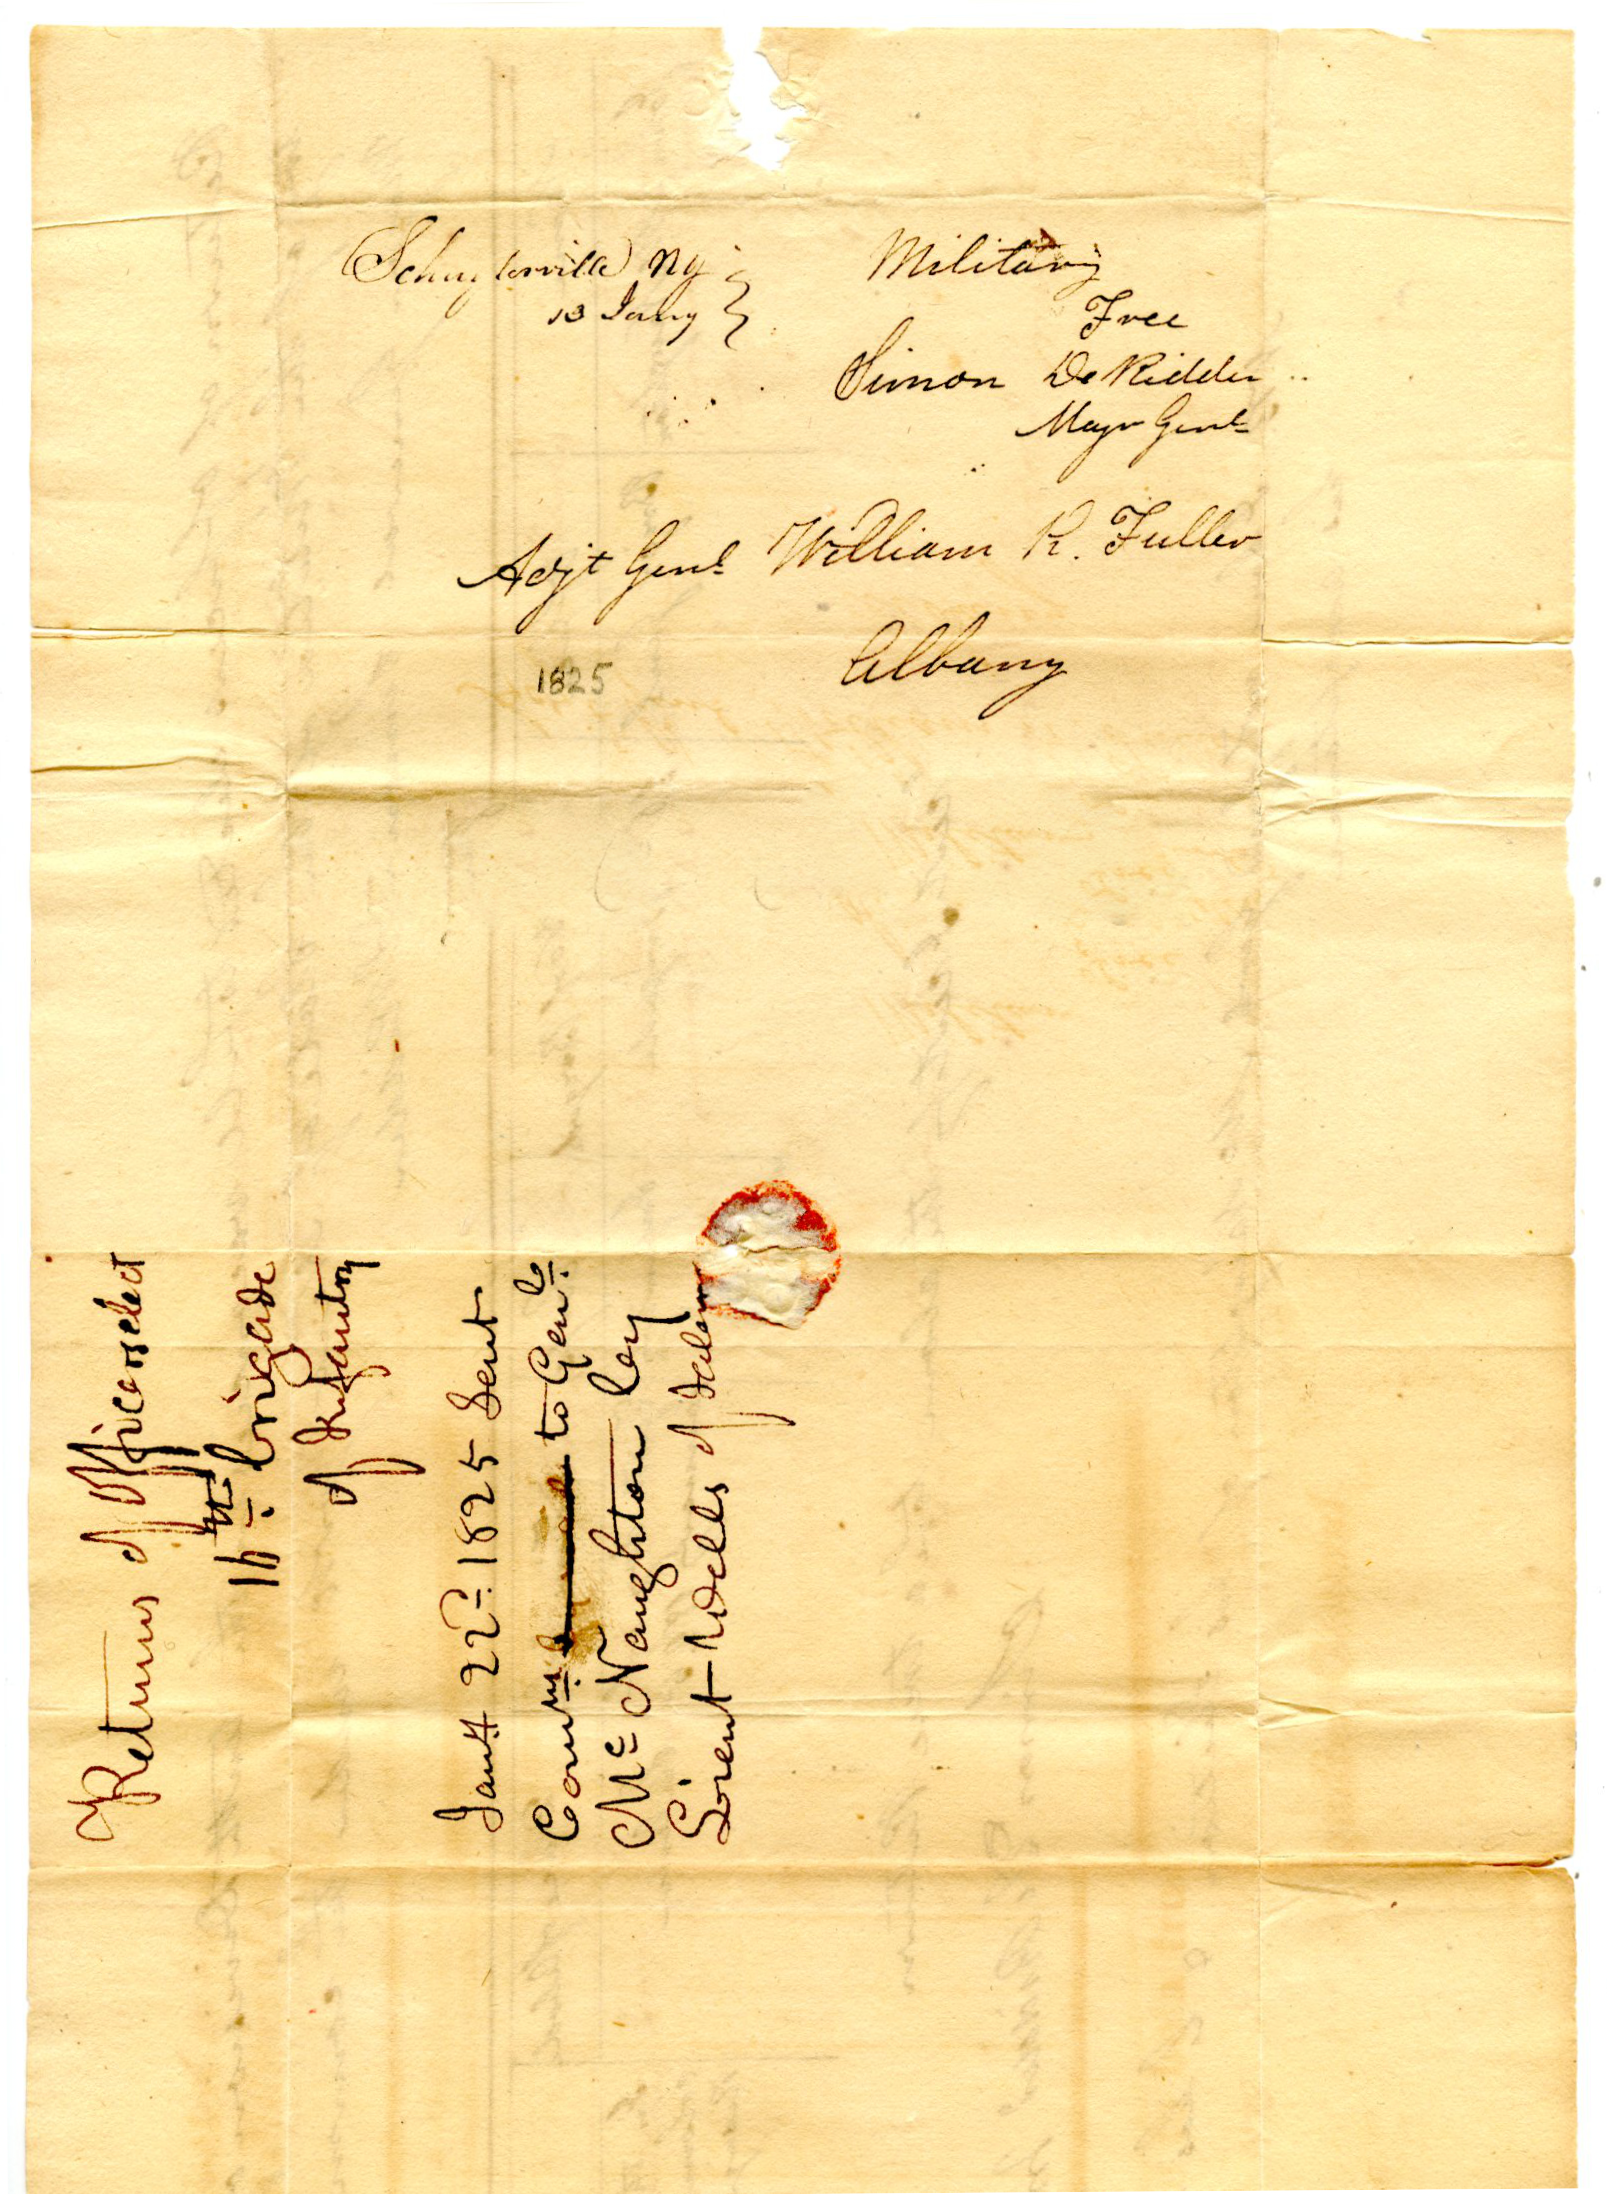 Schuylerville NY
13 Jany
Military
Free
Simon De Ridder
Majr Genl
Adjt Genl William K. Fuller
Albany
1825
Returns of Officers elect
16th. brigade
of Infantry
Jany 22d. 1825 Sent
Comns. to Genl.
Mc Naughton by
Lieut Wells of Salem